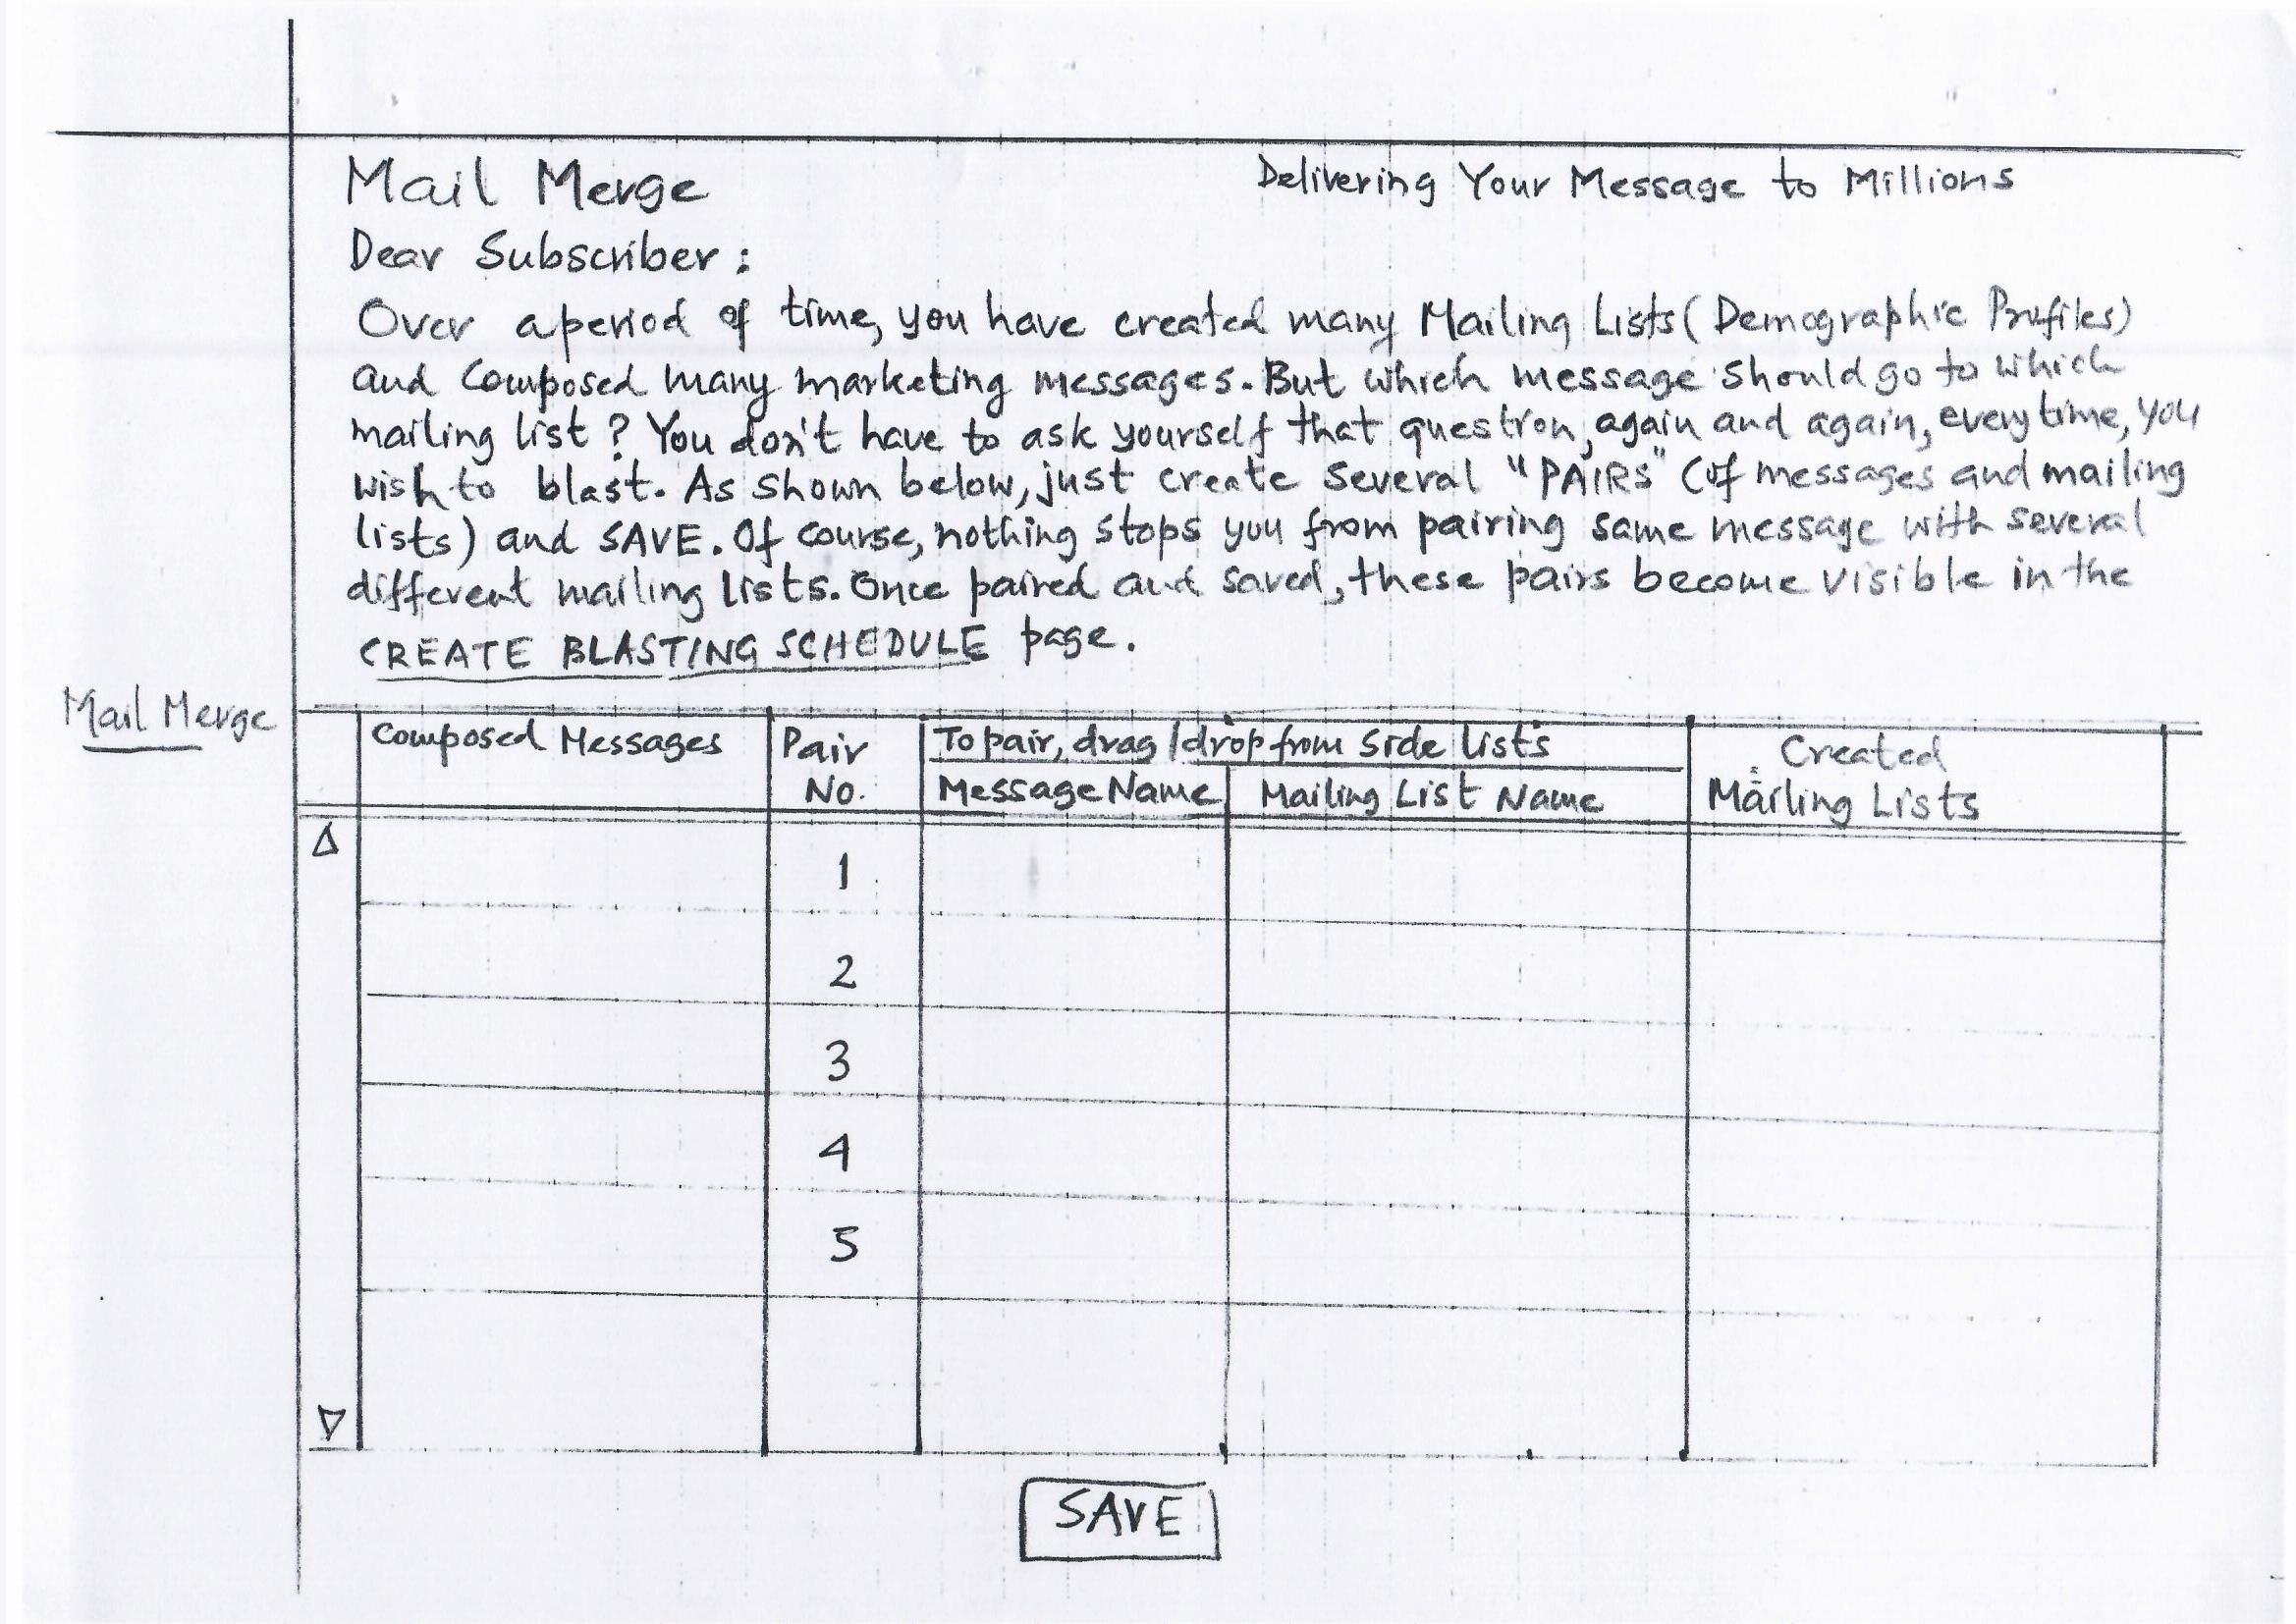 Mail Merge Delivering Your Message to Millions
Dear Subscriber :
Over a period of time, you have created many Mailing Lists (Demographic Profiles)
and composed many marketing messages. But which message should go to which
mailing list ? You don't have to ask yourself that question, again and again, everytime, you
wish to blast. As shown below, just create several "PAIRS" (of messages and mailing
lists) and SAVE. Of course, nothing stops you from pairing same message with several
different mailing lists. Once paired and saved, these pairs become visible in the
CREATE BLASTING SCHEDULE page.
Mail Merge
Composed Messages Pair No. To pair, drag/drop from side lists Created Mailing Lists
Message Name Mailing List Name
1
2
3
4
5
SAVE